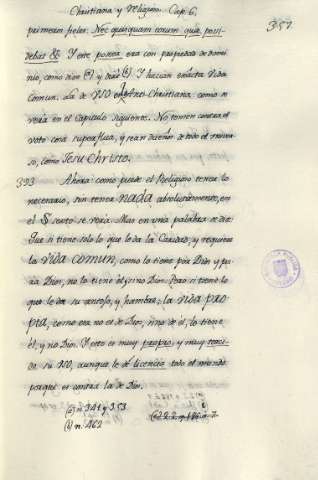 Christiana y Religiosa. Cap. 6.
351
primeros fieles. Nec quisquam eorum quæ possi-
debat &. Y este poseer era con propiedad de domi-
nio, como dixe (a) y diré (b). Y hacian exácta Vida
Comun. La de VSO es Anti-Christiana: como se
verá en el Capitulo siguiente. No teniendo contra el
voto cosa superflua, y sean dueños de todo el mun-
do, como Jesu Christo.
393 Ahora como puede el Religioso tener lo
necesario, sin tener nada absolutamente, en
el § sexto se verá. Mas en una palabra se dice:
Que si tiene solo lo que le da la Caridad, y requiere
la Vida comun, como lo tiene por Dios y pa-
ra Dios, no lo tiene él sino Dios. Pero si tiene lo
que le da su antojo, y hambre: la vida pro-
pia, como esta no es de Dios, sino de él, lo tiene
él, y no Dios. Y esto es muy proprio, y muy
su VSO, aunque le dé licencia todo el mundo
porque es contra la de Dios.
(a) n. 341 y 353
(b) n. 462